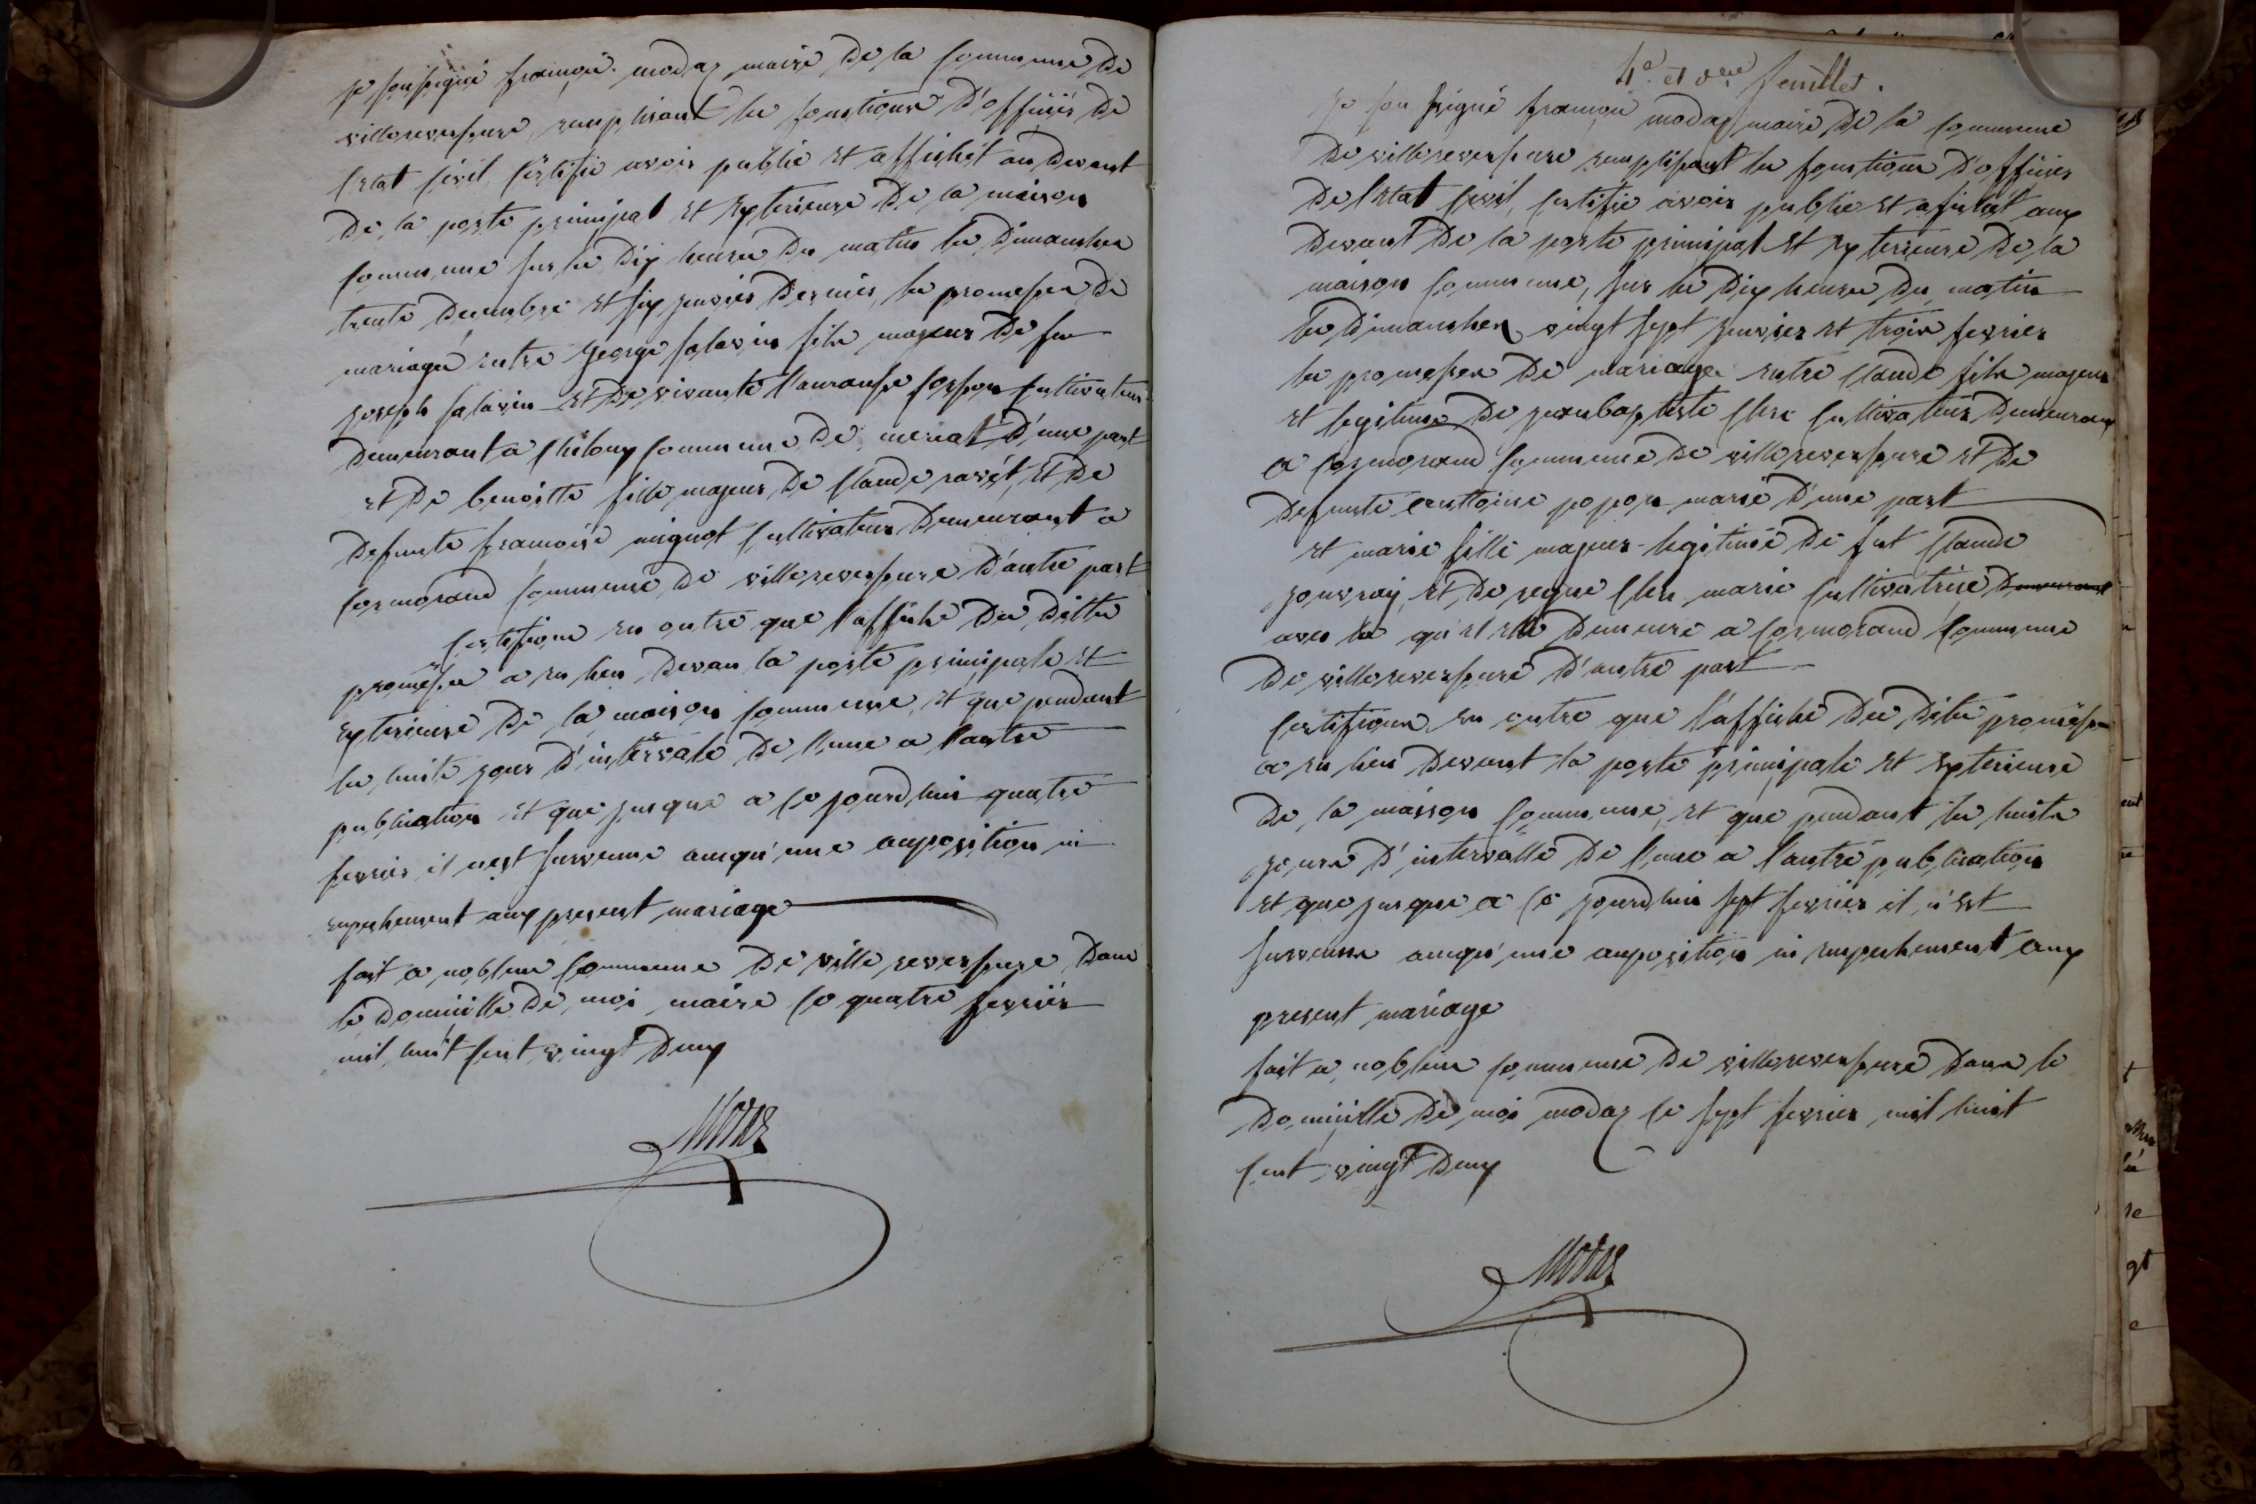 je soussigné françois modaz maire de la commune de
villereversure remplisant les fonctions d'officier de
l'etat civil certifie avoir publié et affichét au devant
de la porte principal et exterieure de la maison
commune sur les dix heures du matin les dimanches
trente decembre et six janvier dernier, les promesses de
mariage entre george salavin fils majeur de feu
joseph salavin et de vivante cultivateur
demeurant a commune de meriat d'une part
et de benoitte fille majeur de claude ravét, et de
defunte françoise mignot cultivateur demeurant a
cormorand commune de villereversure d'autre part
certifions en outre que l'affiche des dittes
promesses a eu lieu devan la porte principale et
exterieure de la maison commune, et que pendant
les huits jours d'intervale de l'une a l'autre
publication et que jusque a ce jourdhui quatre
fevrier il n'est survenue auqu'une auposition ni
empechement aux present mariage
fait a noblens commune de villereversure dans
le domicille de moi maire ce quatre fevrier
mil huit cent vingt deux
Modaz
4e et dere feuillet.
je sousigné françois modaz maire de la commune
de villereversure remplissant les fonctions d'officier
de l'etat civil, certifie avoir publié et afichét aux
devant de la porte principal et exterieure de la
maison commune, sur les dix heures du matin
les dimanches vingt sept janvier et trois fevrier
les promesses de mariage entre claude fils majeur
et legitime de jeanbaptiste clerc cultivateur demeurant
a cormorand commune de villereversure et de
defunte anttoine popon marié d'une part
et marie fille majeur legitime de fut claude
jouvray, et de reque clerc marie cultivatrice demeurant
avec la qu'elle demeure a cormorand commune
de villereversure d'autre part
certifions en outre que l'affiche des dites promesses
a eu lieu devant la porte principale et exterieure
de la maison commune, et que pendant les huits
jours d'intervalle de l'une a l'autre publication
et que jusque a ce jourdhui sept fevrier il n'est
survenue auqu'une auposition ni empechement aux
present mariage
fait a noblens commune de villereversure dans le
domicille de moi modaz ce sept fevrier mil huit
cent vingt deux
Modaz